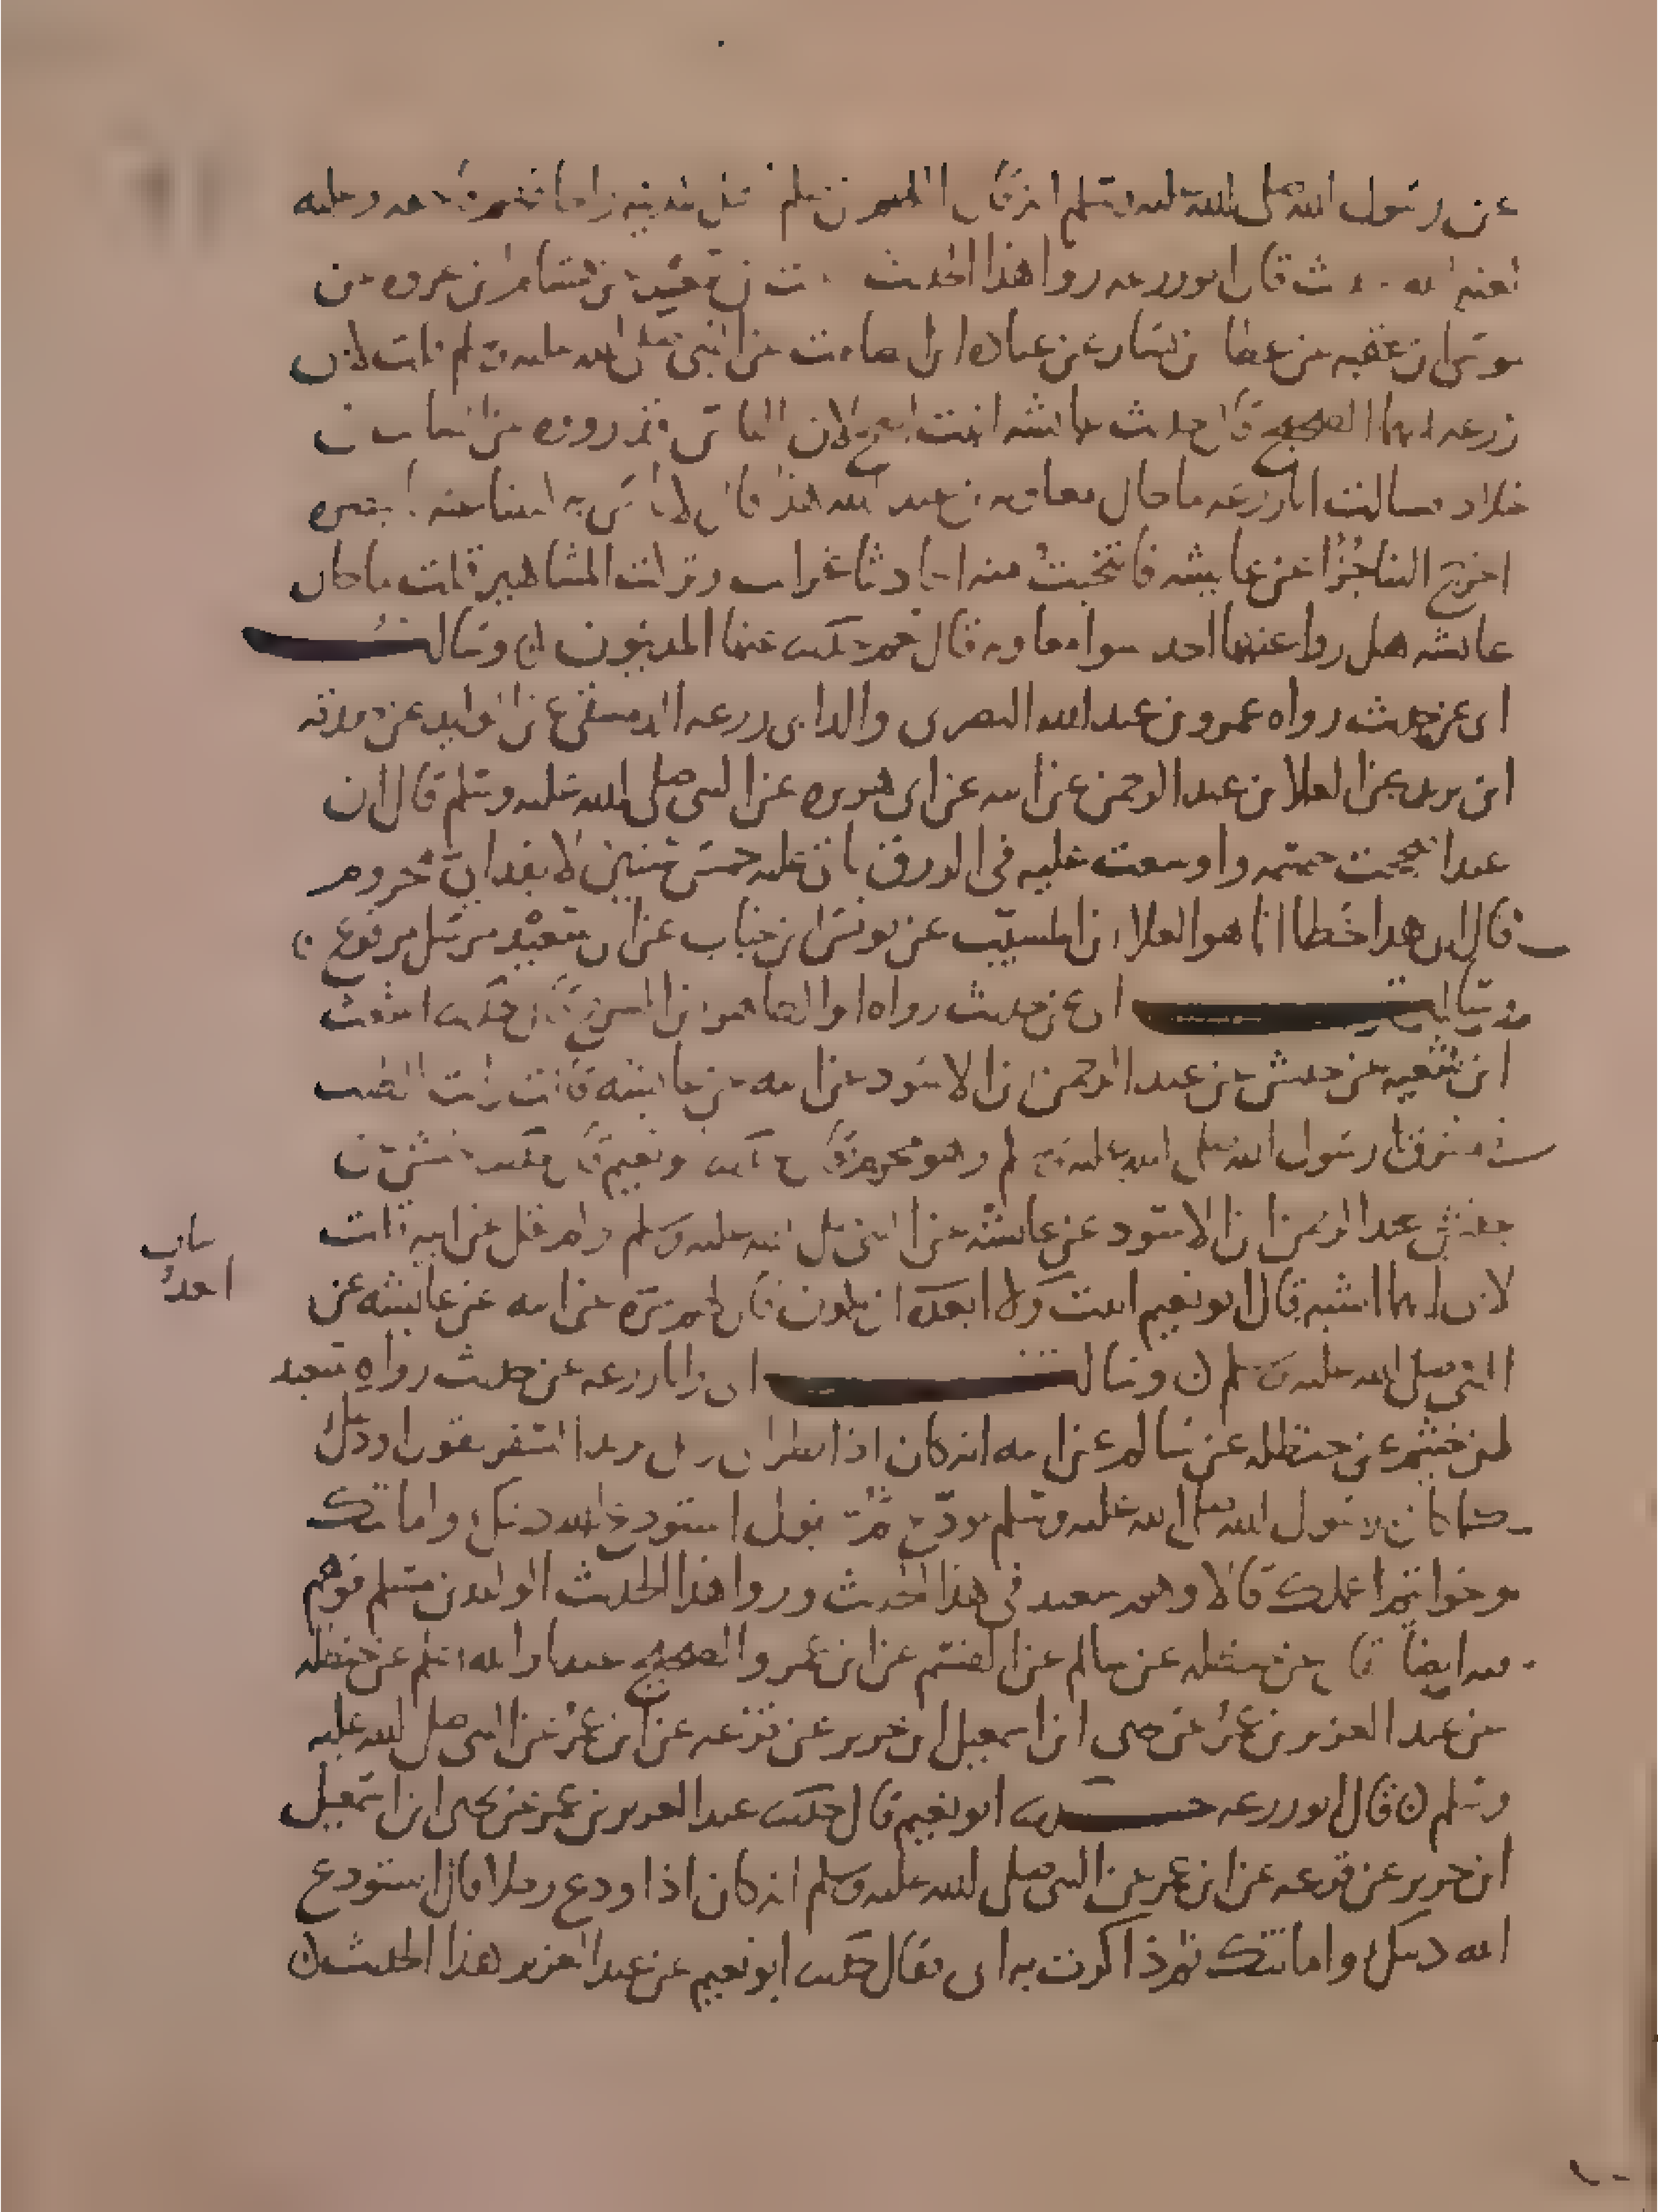 عن رسول الله صلى الله عليه وسلم انه قال اللهم من ظلم اهل المدينة واخافهم فاخفه وعليه
لعنه الله قال ابو زرعه روا هذا الحديث عن هشام ابن عروه عن
موسى ابن عقبه عن عطا بن يسار عن عباده ابن الصامت عن النبي صلى الله عليه وسلم قلت لابي
زرعه ايهما الصحيح قال حديث اشبه لان الناس قد رووه عن السائب بن
خلاد فسالت ابا زرعه ما حال معاويه بن عبد الله هذا قال لا باس به كتبنا عنه بالبصره
اخرج الينا جزا عن عايشه فانتخبت منه احاديثا غرايب وتركت المشاهير قلت ما حال
عايشه هل روا عنها احد سوا معاويه قال نعم حدث عنها المدينون ن وسالت
ابي عن حديث رواه عمرو بن عبد الله النصري والد ابي زرعه الدمشقي عن الوليد عن صدقه
ابن يزيد عن العلا بن عبد الرحمن عن ابيه عن ابي هريره عن النبي صلى الله عليه وسلم قال ان
عبدا صححت جسمه واوسعت عليه في الرزق ياتي عليه خمس سنين لا يفد الي محروم
قال ابي هذا خطا انما هو العلا بن المسيب عن يونس بن خباب عن ابي سعيد مرسل مرفوع ن
وسالت ابي عن حديث رواه ابو الطاهر بن السرح قال حدثنا اشعث
ابن شعبه عن حنش عن عبد الرحمن بن الاسود عن ابيه عن عايشه قالت رايت الطيب
في مفرق رسول الله صلى الله عليه وسلم وهو محرم قال حدثنا ابو نعيم قال حدثنا حنش عن
عبد الرحمن بن الاسود عن عايشه عن النبي صلى الله عليه وسلم ولم يقل عن ابيه قلت
لابي ايهما اشبه قال ابو نعيم اثبت ولا ابعد ان يكون قال لهم مره عن ابيه عن عايشه عن
النبي صلى الله عليه وسلم ن وسالت ابي وابا زرعه عن حديث رواه سعيد
ابن خثيم عن حنظله عن سالم عن ابيه انه كان اذا نظر الى رجل يريد السفر يقول اودعك
كما كان رسول الله صلى الله عليه وسلم يودع ثم يقول استودع الله دينك وامانتك
وخواتيم عملك قالا وهم سعيد في هذا الحديث وروا هذا الحديث الوليد بن مسلم فوهم
فيه ايضا قال عن حنظله عن سالم عن القسم عن ابن عمر والصحيح عندنا والله اعلم عن حنظله
عن عبد العزيز بن عمر عن يحيى ابن اسمعيل ابن جرير عن قزعه عن ابن عمر عن النبي صلى الله عليه
وسلم ن قال ابو زرعه حدثنا ابو نعيم قال حدثنا عبد العزيز بن عمر عن يحيى ابن اسمعيل
ابن جرير عن قزعه عن ابن عمر عن النبي صلى الله عليه وسلم انه كان اذا ودع رجلا قال استودع
الله دينك وامانتك ثم ذاكرت به ابي فقال حدثنا ابو نعيم عن عبد العزيز هذا الحديث ن